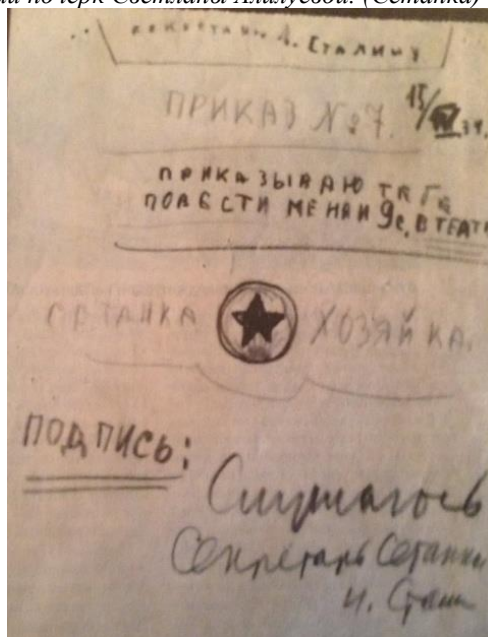 почерк Светланы Аллилуевой. (Сетанка)
СЕКРЕТАРЮ И. СТАЛИНУ
ПРИКАЗ №7. 15/
34.
ПРИКАЗЫВАЮ ТЕБЕ
ПОВЕСТИ МЕНЯ
В ТЕАТ
СЕТАНКА ХОЗЯЙКА.
ПОДПИСЬ:
Секретарь Сетанки
И. Стали